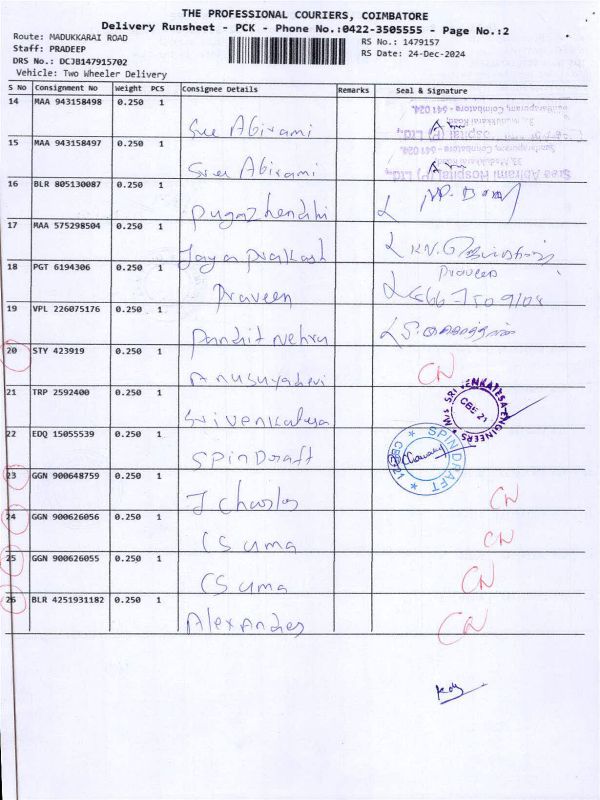 THE PROFESSIONAL COURIERS, COIMBATORE
Delivery Runsheet - PCK - Phone No.:0422-3505555 - Page No.:2
Route: MADUKKARAI ROAD
RS No.: 1479157
Staff: PRADEEP
RS Date: 24-Dec-2024
DRS No.: DCJB147915702
Vehicle: Two Wheeler Delivery
S No Consignment No Weight PCS Consignee Details Remarks Seal & Signature
14 MAA 943158498 0.250 1 Sree Abirami
15 MAA 943158497 0.250 1 Sree Abirami
Sree Abirami Hospital (P) Ltd.,
33, Madukkarai Road,
Sundarapuram, Coimbatore - 641 024.
16 BLR 805130087 0.250 1 Pugazhendhi
17 MAA 575298504 0.250 1 Jaya prakash
18 PGT 6194306 0.250 1 Praveen Praveen
19 VPL 226075176 0.250 1 Pandit Nehru
20 STY 423919 0.250 1 Anusuyadevi CN
21 TRP 2592400 0.250 1 Sri venkatesa
M/s SRI VENKATESA ENGINEERS CBE 21
22 EDQ 15055539 0.250 1 SPINDRAFT
SPINDRAFT CBE 21
23 GGN 900648759 0.250 1 J Charles CN
24 GGN 900626056 0.250 1 CS uma CN
25 GGN 900626055 0.250 1 CS uma CN
26 BLR 4251931182 0.250 1 Alexander CN